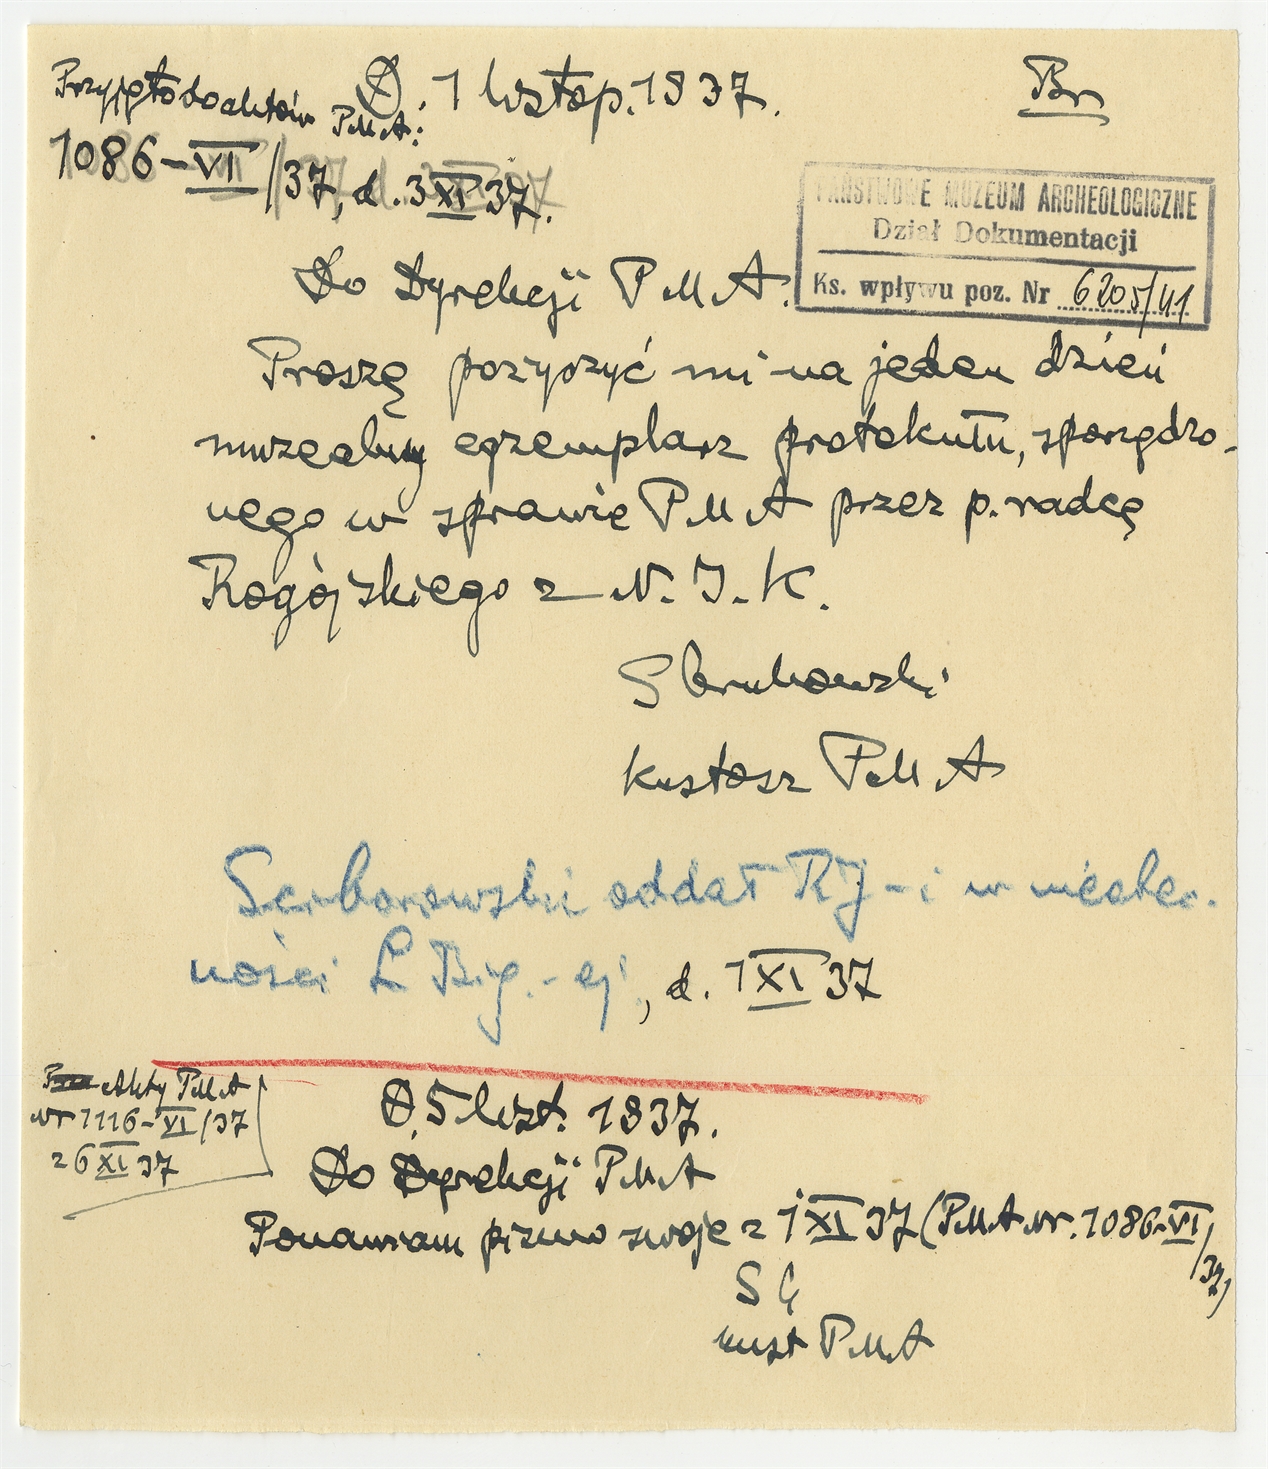 Przyjęto do aktów PMA:
1086-VI/37, d. 3 XI 37.
D. 1 listop. 1937.
Br
PAŃSTWOWE MUZEUM ARCHEOLOGICZNE
Dział Dokumentacji
Ks. wpływu poz. Nr 6205/41
Do Dyrekcji PMA.
Proszę pożyczyć mi na jeden dzień
muzealny egzemplarz protokułu, sporządzo-
nego w sprawie PMA przez p. radcę
Rogójskiego z N.I.K.
S Krukowski
Kustosz PMA
oddał RJ-i w nieobec-
ności Ł. Big.-ej, d. 1 XI 37
Akty PMA
nr 1116-VI/37
z 6 XI 37
D. 5 list. 1937.
Do Dyrekcji PMA
Ponawiam pismo swoje z 1 XI 37 (PMA nr. 1086-VI/37)
SK
kust PMA